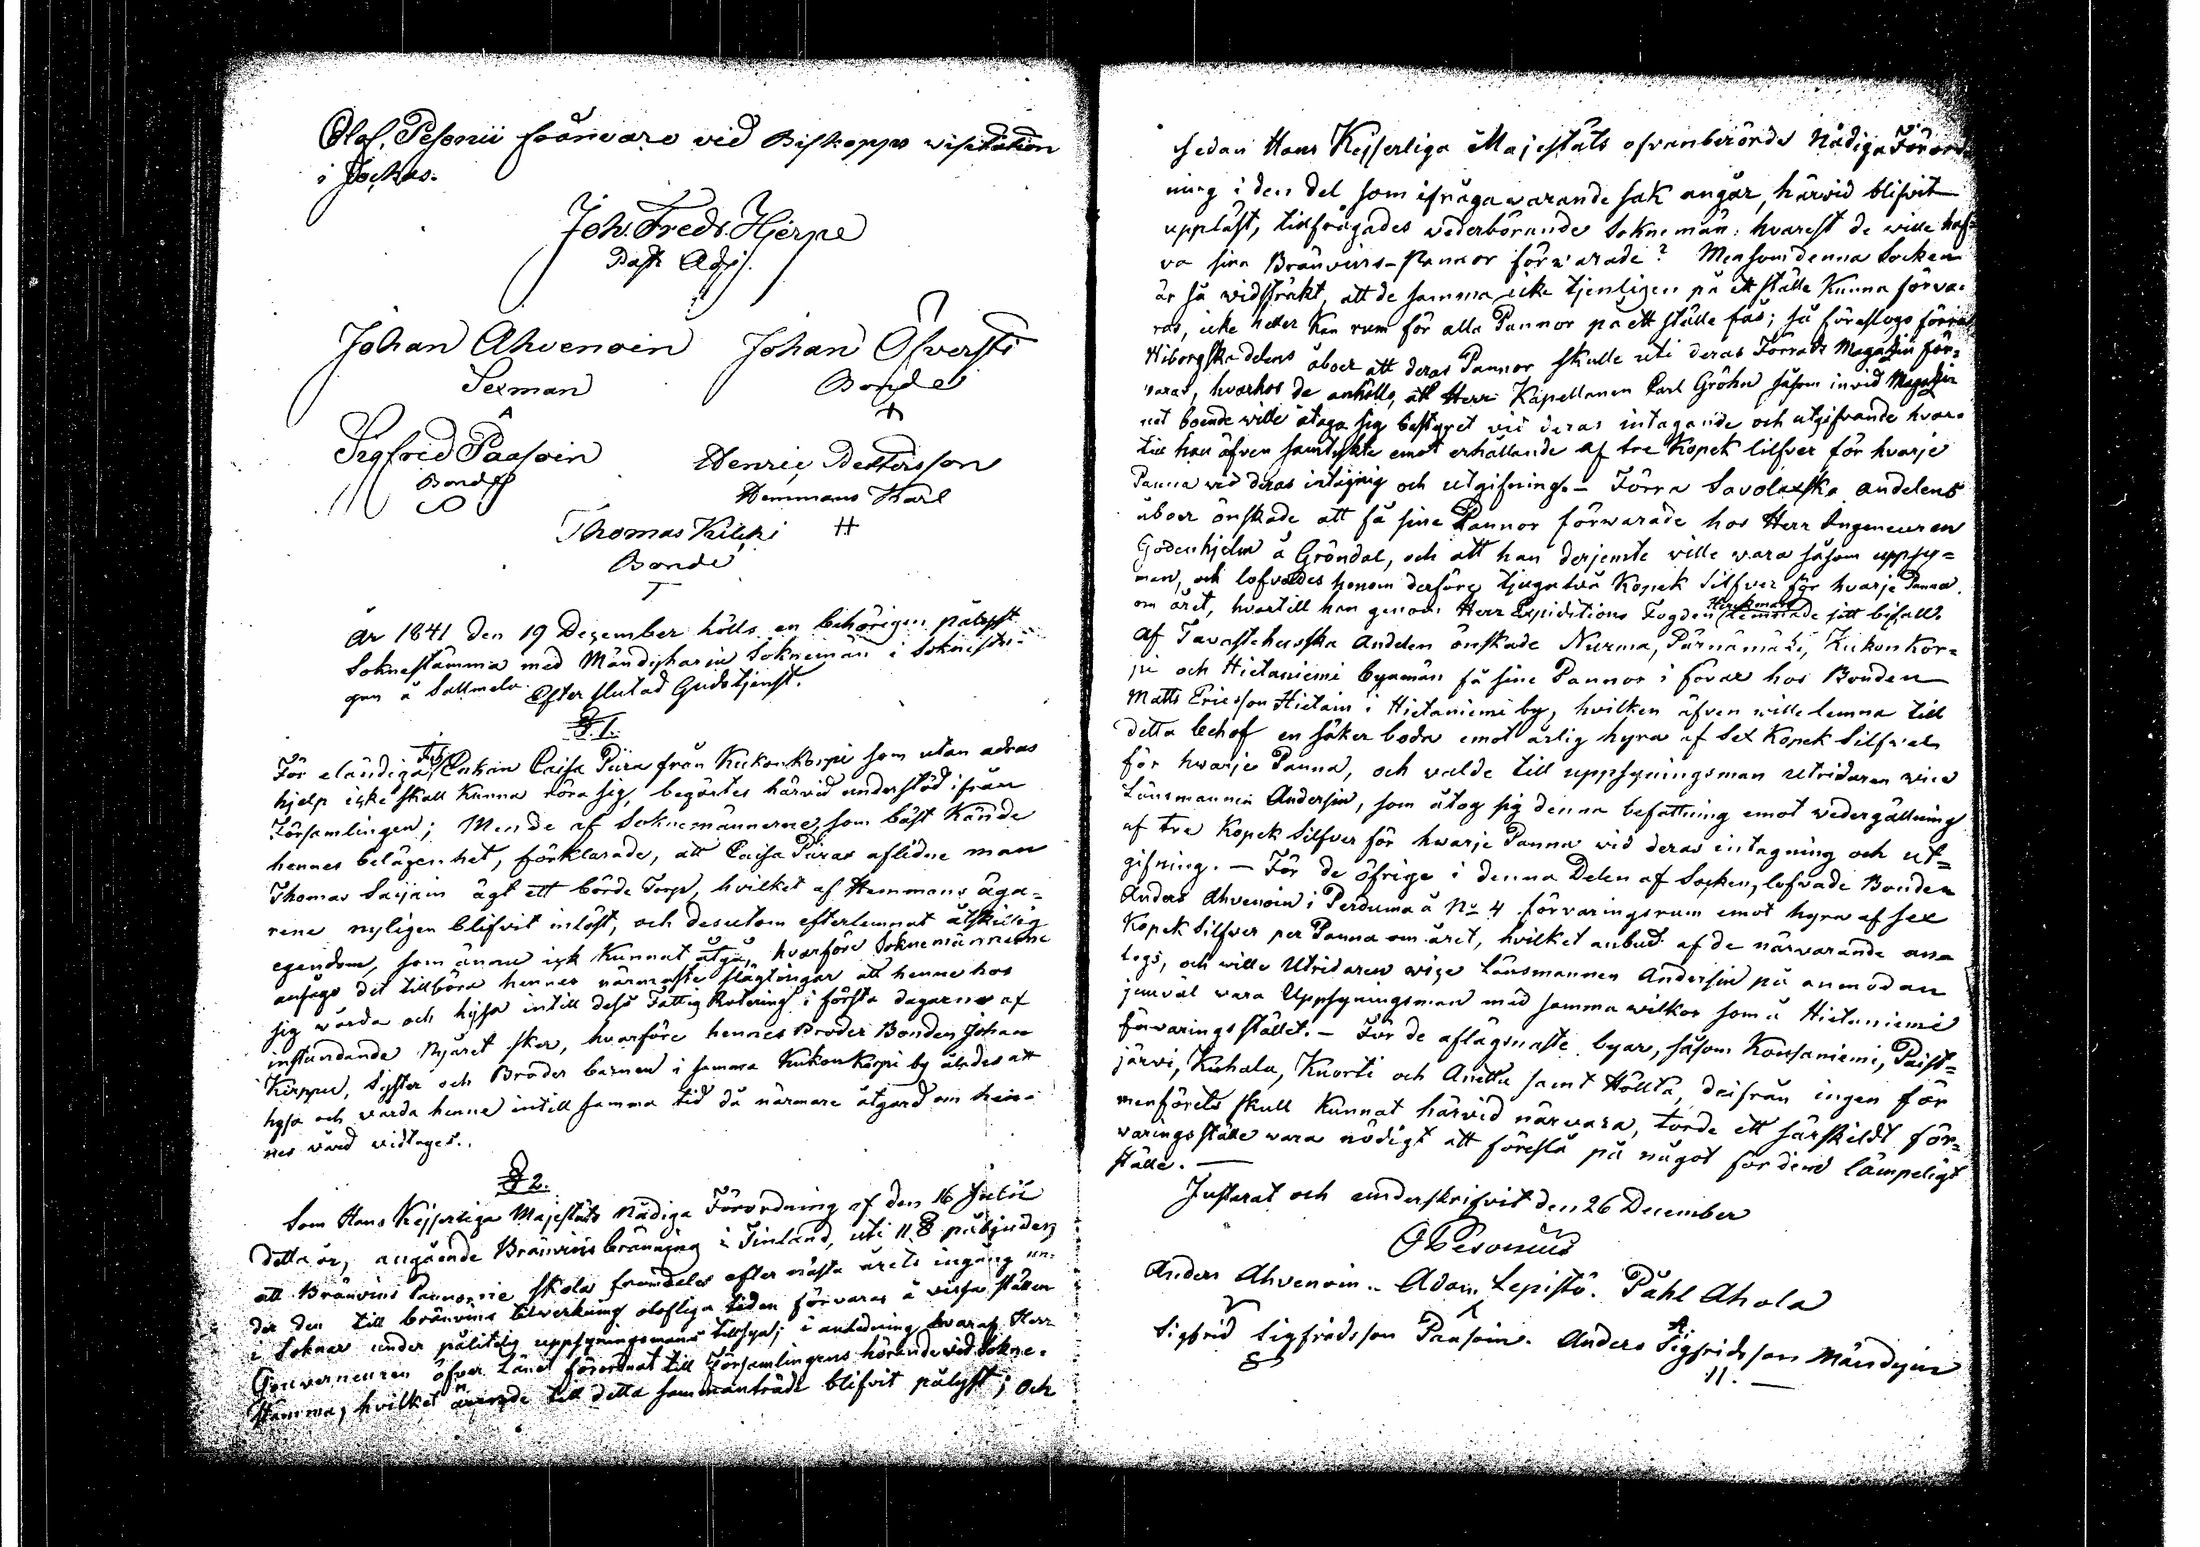 Olof. Pesonii frånvaro vid Biskopps visitation
i Jockas.
Joh. Fredr. Hjerpe
Past. Adj.
Johan Ahvenoin
Johan Öfversti
Sexman
Bonde
Sigfrid Paasoin
Henric Pettersson
Bonde
Hemmans Karl
Thomas Kilcki
H
Bonde
År 1841 den 19 Dezember hölls en behörigen pålyst
Soknestämma med Mändyharju Soknemän i Soknestu-
gan å Sallmela Efter slutad Gudstjenst.
§ 1.
För eländiga Enkan Caisa Piira från Kukonkorpi som utan adras
hjelp icke skall kunna röra sig, begärtes härvid understöd ifrån
Församlingen; Men de af Soknemännerne, som bäst kände
hennes belägenhet, förklarade, att Caisa Piiras aflidne man
Thomas Saijain ägt ett börds Torp, hvilket af Hemmans äga-
rene nyligen blifvit inlöst, och desutom efterlemnat åtskillig
egendom, som ännu icke kunnat åtgå, hvarföre Soknemännerne
ansågo det tillböra hennes närmaste slägtingar att henne hos
sig vårda och hysa intill dess Fattig Rotering i första dagarne af
instundande Nyåret sker, hvarföre hennes Broder Bonden Johan
Kirppu, Syster och Broders barnen i samma Kukonkorpi by ålades att
hysa och vårda henne intill samma tid då närmare åtgärd om hen-
nes vård vidtages.
§ 2.
Som Hans Kejserliga Majestäts Nådiga Förordning af den 16 Julii
detta år, angående Bränvins bränning i Finland, uti 11 § påbjuder,
att Bränvins Pannorne skola framdeles efter nästa årets ingång un-
der den till bränvins tilverkning olofliga tiden förvaras å vissa ställen
i Soknar under pålitelig uppsyningsmans tillsyn; i anledning hvaraf Herr
Gouverneuren öfver Länet förordnat till Församlingens hörande vid Sokne-
stämma, hvilket ärende till detta sammanträde blifvit pålyst; och
sedan Hans Kejserliga Majestäts ofvanberörde Nådiga Förord-
ning i den del som ifrågavarande sak angår, härvid blifvit
uppläst, tillfrågades vederbörande Soknemän: hvarest de ville haf-
va sina Bränvins-Pannor förvarade? Men som denna Socken
är så widsträkt, att de samma icke tjenligen på ett ställe kunna förva-
ras, icke heller kan rum för alla Pannor på ett ställe fås; så föreslogo förra
Wiborgska delens åboer att deras Pannor skulle uti deras Förråds Magazin för-
varas, hvarhos de anhöllo, att Herr Kapellanen Carl Gröhn såsom invid Magazi-
net boende ville åtaga sig bestyret vid deras intagande och utgifvande hvar-
till han äfven samtyckte emot erhållande af tre Kopek silfver för hvarje
Panna vid deras intagning och utgifning. — Förra Savolaxska andelens
åboer önskade att få sine Pannor förvarade hos Herr Ingeneuren
Godenhjelm å Gröndal, och att han derjemte ville vara såsom uppsy-
man, och lofvades honom derföre tjugutvå Kopek Silfver för hvarje Panna
om året, hvartill han genom Herr Expeditions Fogden lemnade sitt bifall.
Af Tavastehusska Andelen önskade Nurma, Pärnämäki, Kukonkor-
pi och Hietaniemi byamän få sine Pannor i förvar hos Bonden
Matts Ericsson Hietain i Hietaniemi by, hvilken äfven ville lemna till
detta behof en säker boda emot årlig hyra af Sex Kopek Silfver
för hwarje Panna, och valde till uppsyningsman Utridaren vice
Länsmannen Andersin, som åtog sig denna befattning emot vedergällning
af tre Kopek Silfver för hwarje Panna vid deras intagning och ut-
gifning. — För de öfrige i denna Delen af Socken, lofvade Bonden
Anders Ahvenoin i Perduma å No 4 förvaringsrum emot hyra af sex
Kopek Silfver per Panna om året, hvilket anbud af de närvarande an-
togs, och ville Utridaren vice Länsmannen Andersin på anmodan
jemväl vara Uppsyningsman med samma wilkor som å Hietaniemi
förvaringsstället. — För de aflägsnaste byar, såsom Kousaniemi, Paist-
järvi, Kuhala, Kuorti och Anettu samt Höltta, deifrån ingen för
menförets skull kunnat härvid närvara, torde ett särskildt för-
varingsställe vara nödigt att föreslå på något för dem lämpeligt
ställe. —
Justerat och underskrifvit den 26 December
O Pesonius
Anders Ahvenoin. Adam Lepistö. Påhl Ahola
Sigfrid Sigfridsson Paasoin. Anders Sigfridsson Mändynen